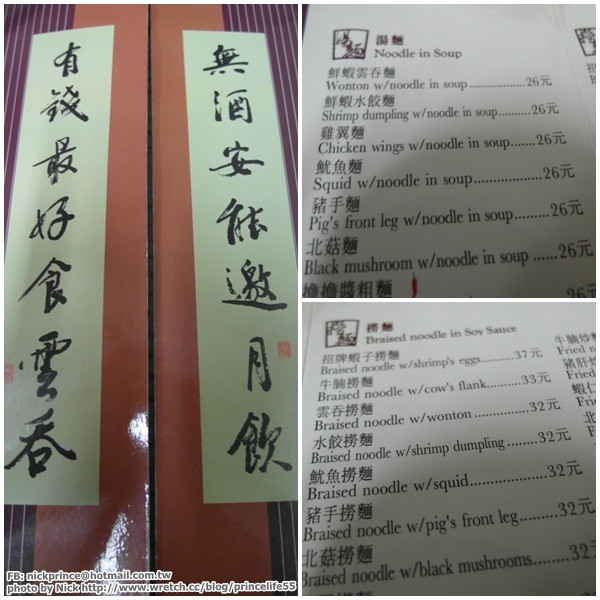 無酒安能邀月飲
有錢最好食雲吞
湯麵
Noodle in Soup
鮮蝦雲吞麵
Wonton w/noodle in soup................26元
鮮蝦水餃麵
Shrimp dumpling w/noodle in soup.........26元
雞翼麵
Chicken wings w/noodle in soup.......26元
魷魚麵
Squid w/noodle in soup..................26元
豬手麵
Pig's front leg w/noodle in soup.........26元
北菇麵
Black mushroom w/noodle in soup ......26元
擔擔醬粗麵
26元
撈麵
Braised noodle in Soy Sauce
招牌蝦子撈麵
Braised noodle w/shrimp's eggs..........37元
牛腩撈麵
Braised noodle w/cow's flank..........33元
雲吞撈麵
Braised noodle w/wonton ..............32元
水餃撈麵
Braised noodle w/shrimp dumpling ........32元
魷魚撈麵
Braised noodle w/squid...................32元
豬手撈麵
Braised noodle w/pig's front leg.........32元
北菇撈麵
Braised noodle w/black mushrooms........32元
牛腩炒麵
Fried n
豬肝炒
Fried
蝦仁
Frie
FB: nickprince@hotmail.com.tw
photo by Nick http://www.wretch.cc/blog/princelife55